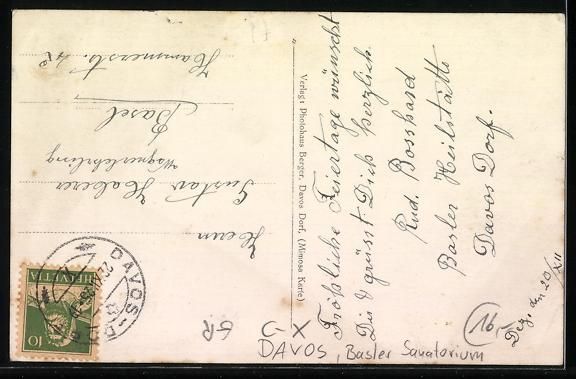 Fröhliche Feiertage wünscht
Dir & grüsst Dich herzlich
Rud. Bosshard
Basler Heilstätte
Davos Dorf.
Dez. den 20/XII
Verlag: Photohaus Berger, Davos Dorf. (Mimosa Karte)
Herrn
Gustav Haberer
Wagnerlehrling
Basel
Hammerstr.
HELVETIA
10
DAVOS-
GR
G-X
16,-
DAVOS, Basler Sanatorium